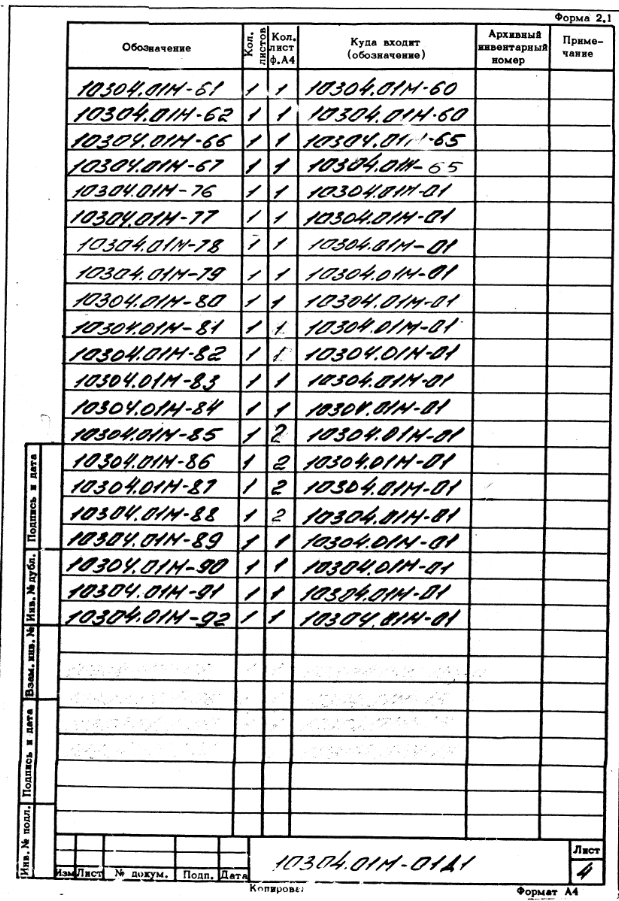 Форма 2.1
Обозначение Кол. листов Кол. лист ф.А4 Куда входит (обозначение) Архивный инвентарный номер Примечание
10304.01М-61 1 1 10304.01М-60
10304.01М-62 1 1 10304.01М-60
10304.01М-66 1 1 10304.01М-65
10304.01М-67 1 1 10304.01М-65
10304.01М-76 1 1 10304.01М-01
10304.01М-77 1 1 10304.01М-01
10304.01М-78 1 1 10304.01М-01
10304.01М-79 1 1 10304.01М-01
10304.01М-80 1 1 10304.01М-01
10304.01М-81 1 1 10304.01М-01
10304.01М-82 1 1 10304.01М-01
10304.01М-83 1 1 10304.01М-01
10304.01М-84 1 1 10304.01М-01
10304.01М-85 1 2 10304.01М-01
10304.01М-86 1 2 10304.01М-01
10304.01М-87 1 2 10304.01М-01
10304.01М-88 1 2 10304.01М-01
10304.01М-89 1 1 10304.01М-01
10304.01М-90 1 1 10304.01М-01
10304.01М-91 1 1 10304.01М-01
10304.01М-92 1 1 10304.01М-01
Подпись и дата
Инв. № дубл.
Взам. инв. №
Подпись и дата
Инв. № подл.
Изм Лист № докум. Подп. Дата
10304.01М-01Д1
Лист
4
Копировал
Формат А4